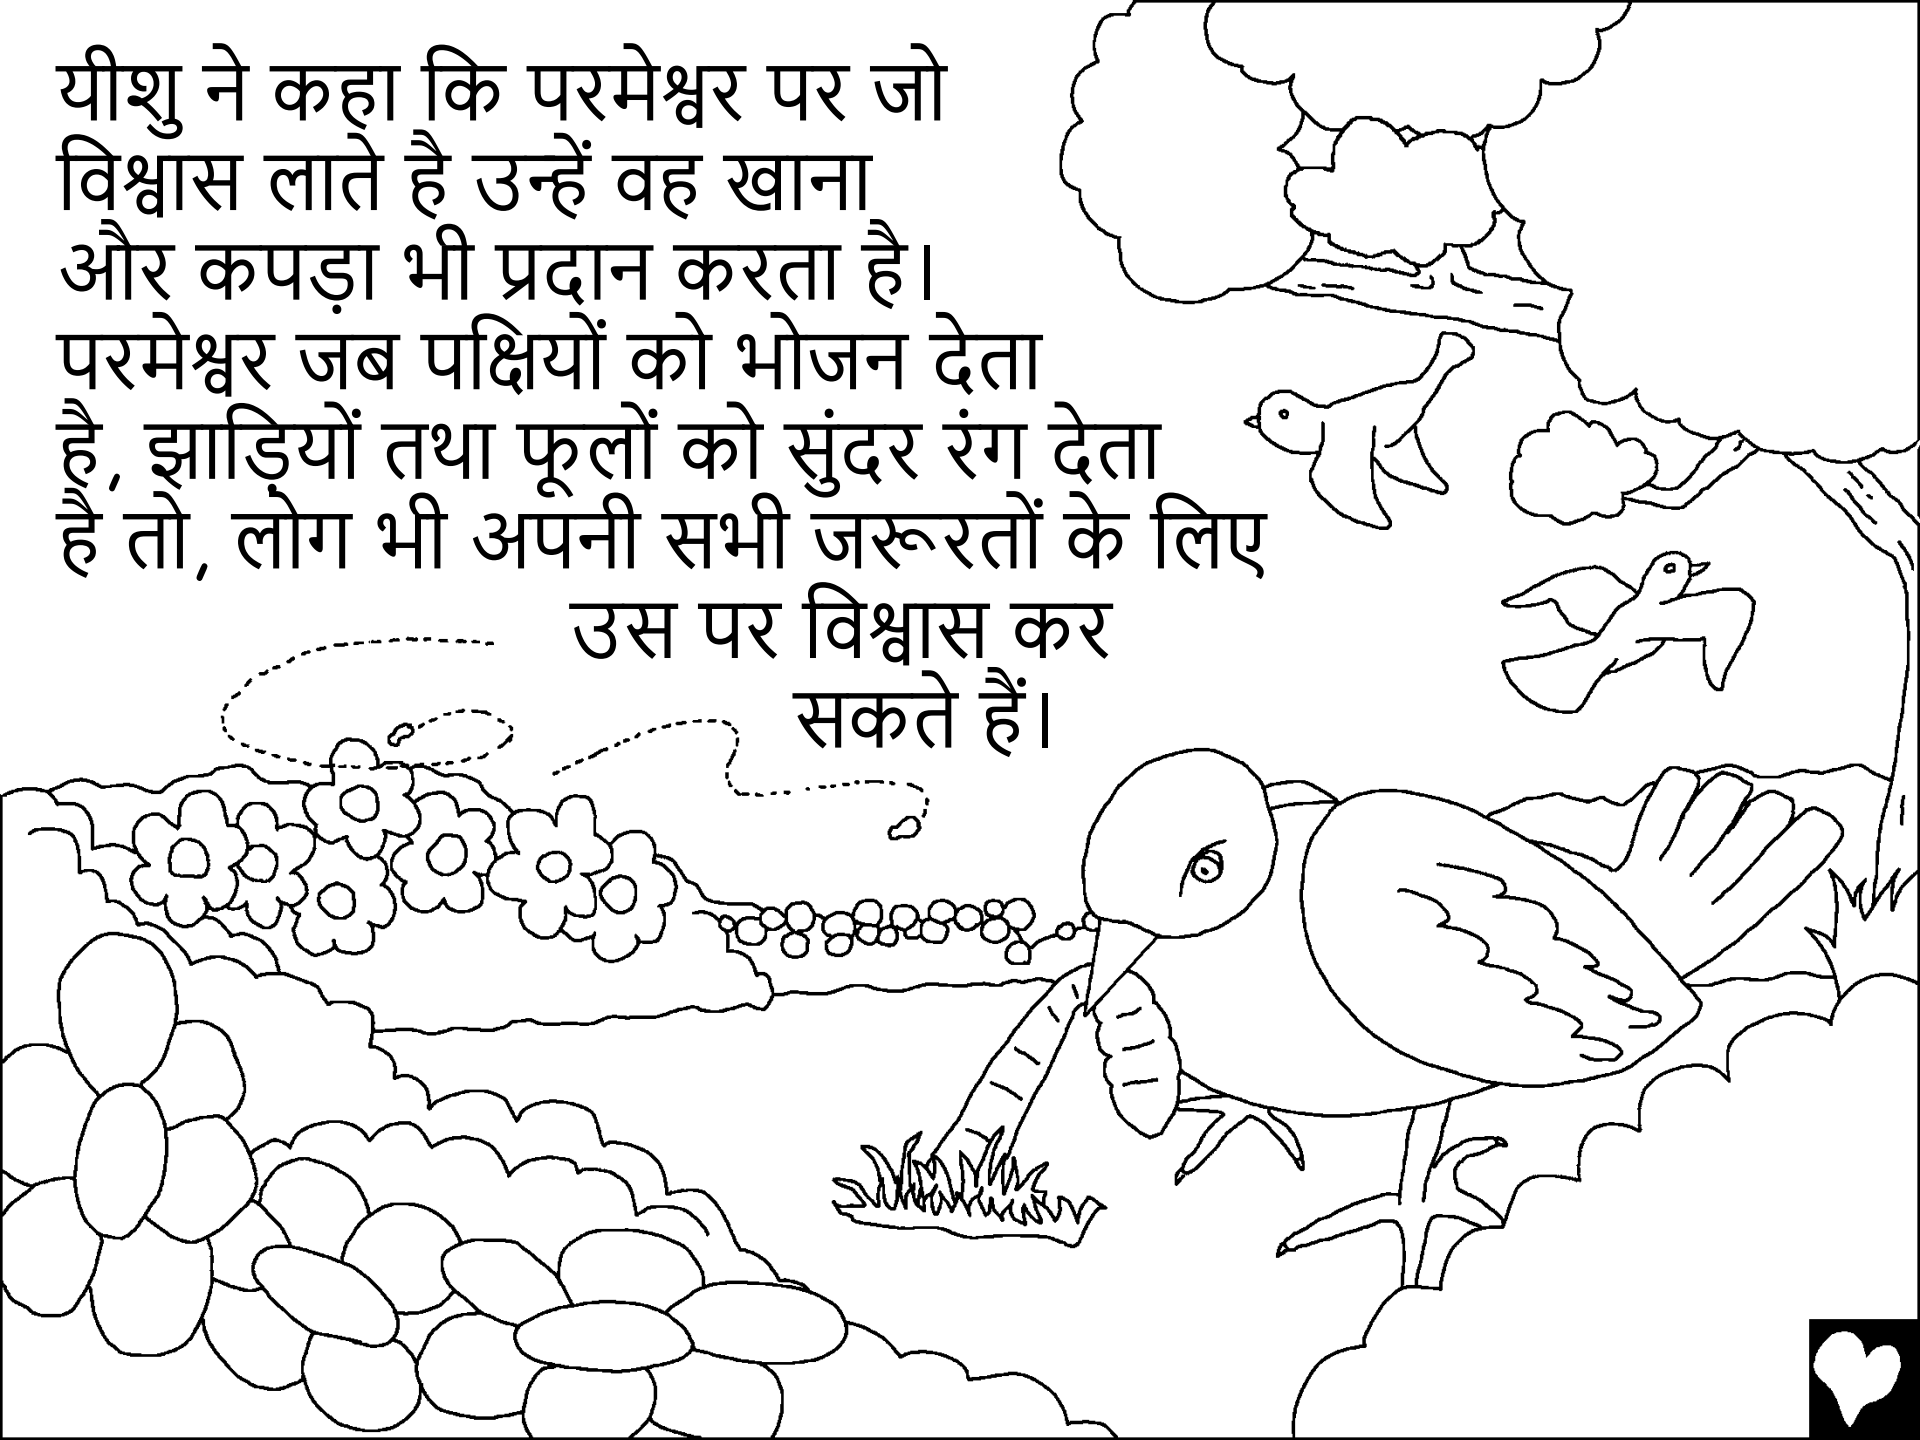 यीशु ने कहा कि परमेश्वर पर जो
विश्वास लाते है उन्हें वह खाना
और कपड़ा भी प्रदान करता है।
परमेश्वर जब पक्षियों को भोजन देता
है, झाड़ियों तथा फूलों को सुंदर रंग देता
है तो, लोग भी अपनी सभी जरूरतों के लिए
उस पर विश्वास कर
सकते हैं।